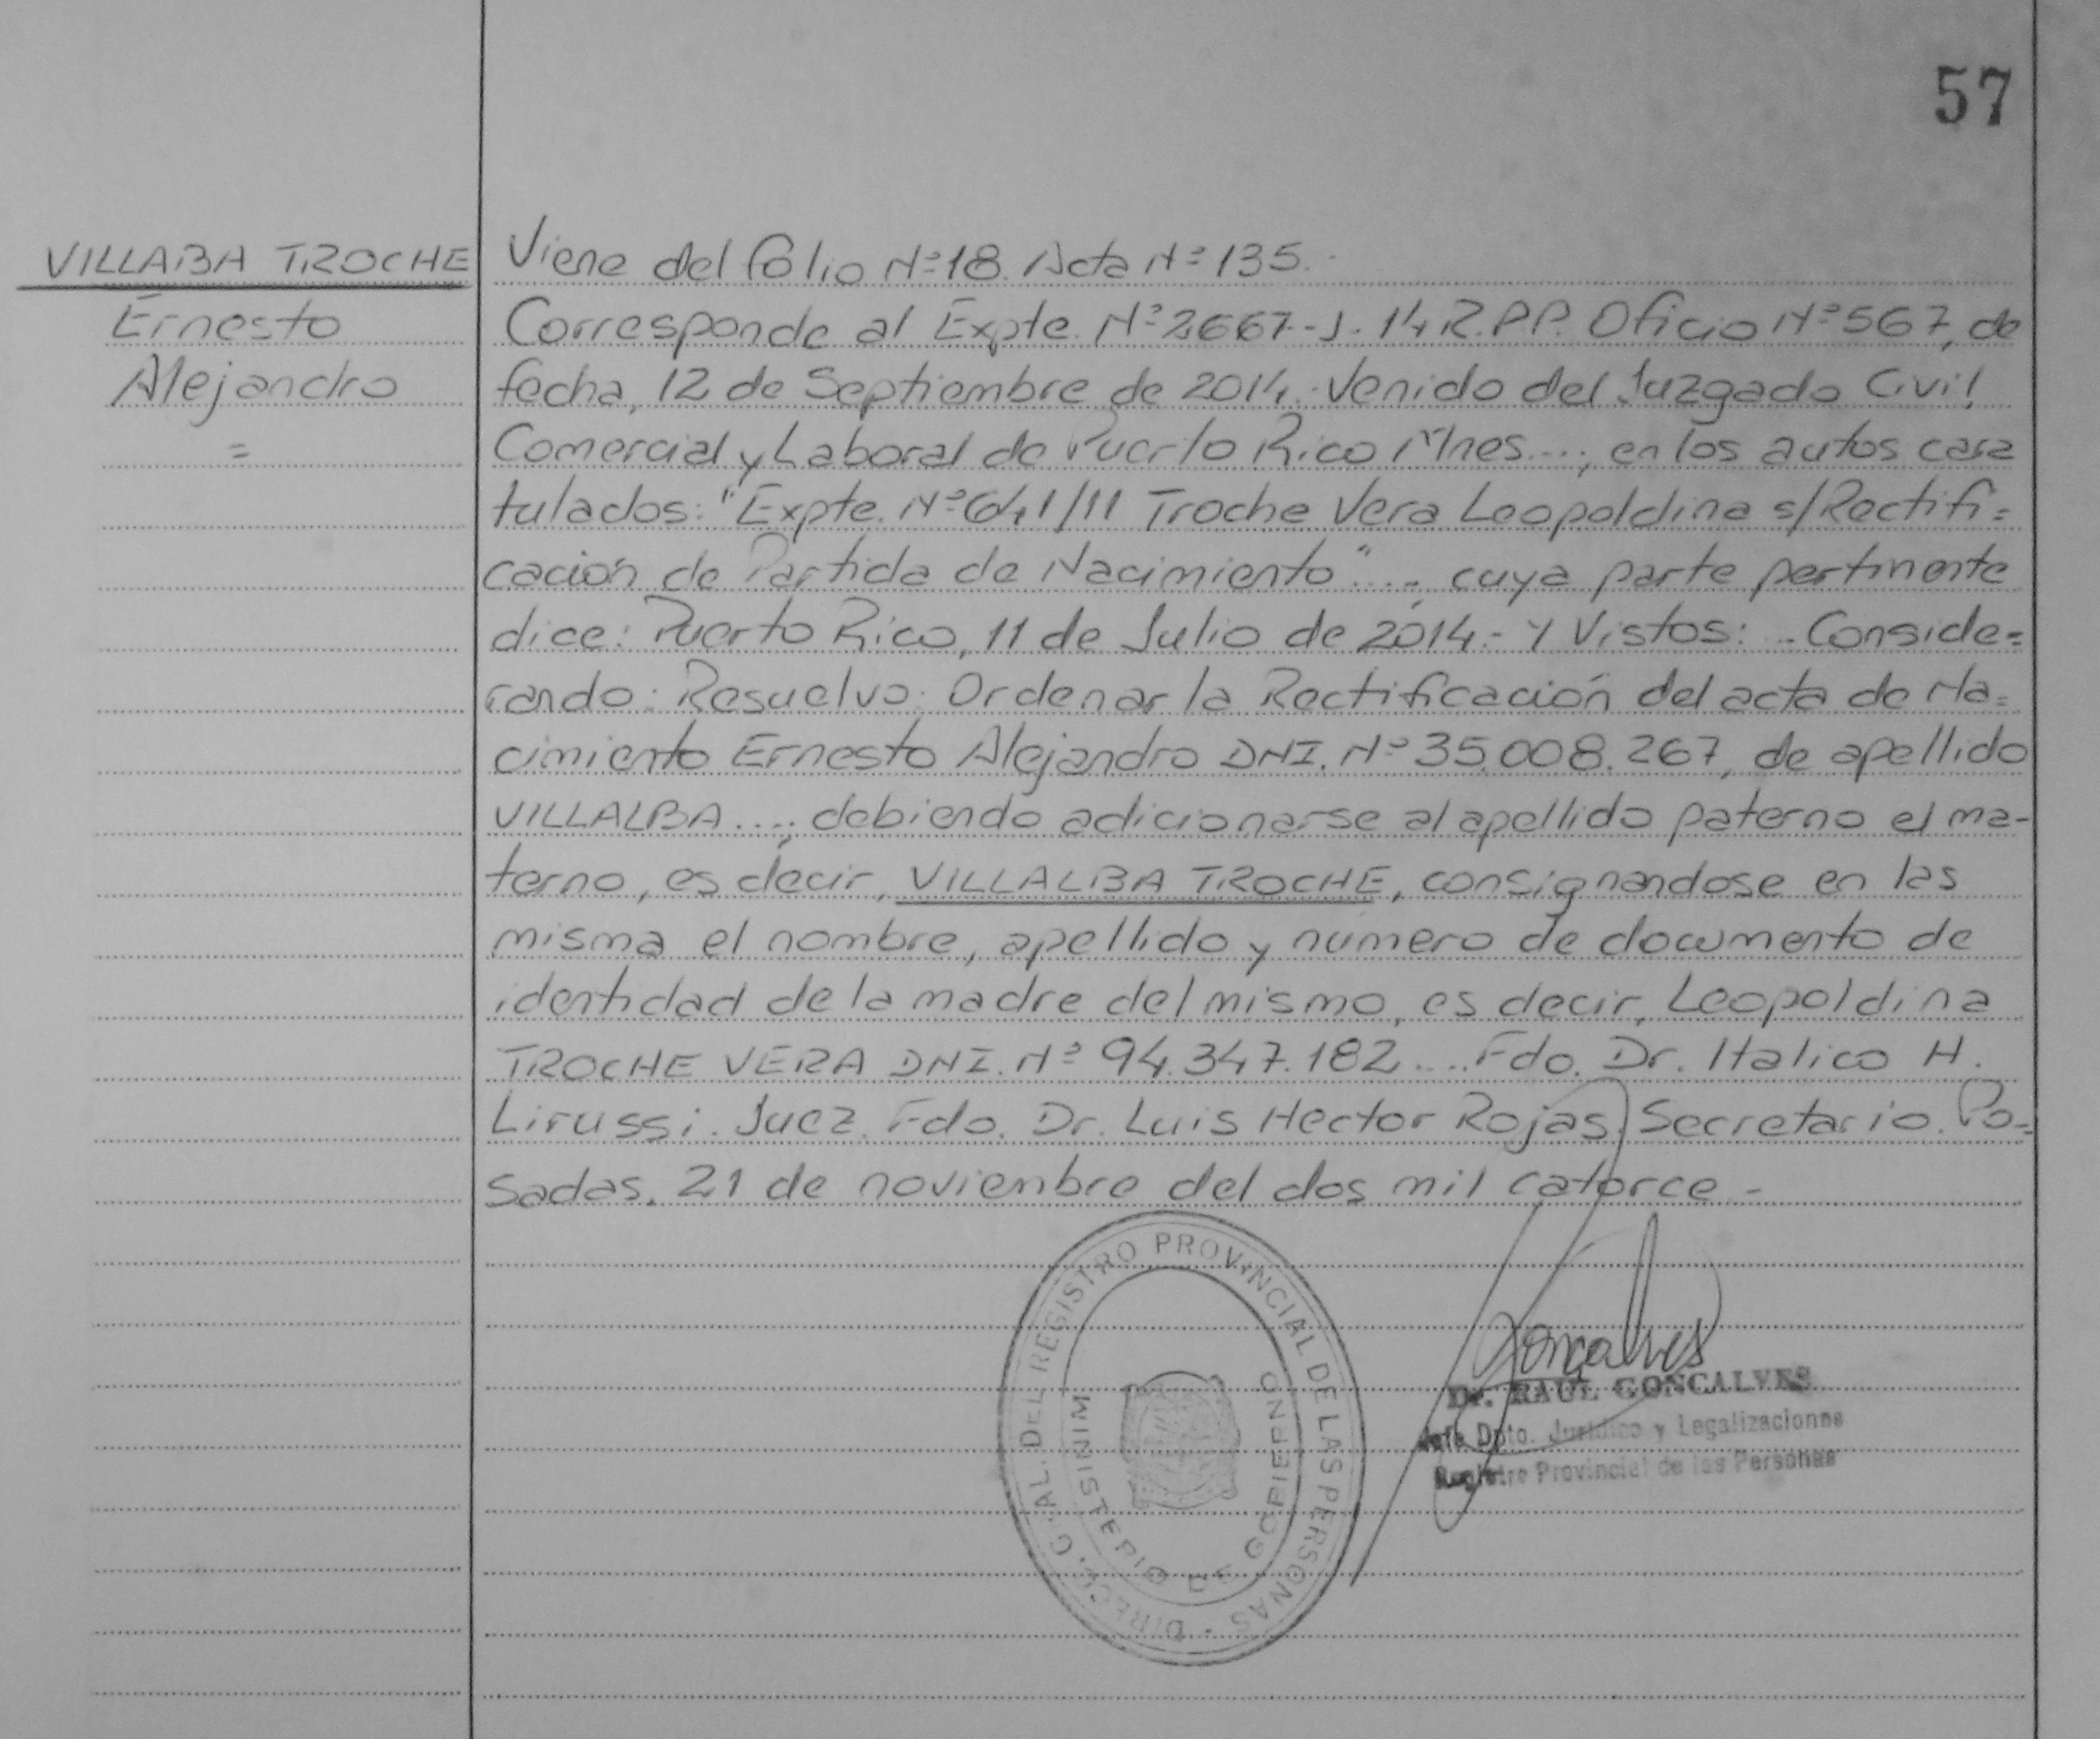 57
VILLABA TROCHE
Ernesto
Alejandro
=
Viene del folio Nº 18. Acta Nº 135.-
Corresponde al Expte. Nº 2667-J-14 R.P.P. Oficio Nº 567, de
fecha, 12 de Septiembre de 2014. Venido del Juzgado Civil
Comercial y Laboral de Puerto Rico Mnes...., en los autos cara
tulados: "Expte. Nº 641/11 Troche Vera Leopoldina s/Rectifi=
cación de Partida de Nacimiento"..., cuya parte pertinente
dice: Puerto Rico, 11 de Julio de 2014.- Y Vistos: .. Conside=
rando: Resuelvo: Ordenar la Rectificación del acta de Na=
cimiento Ernesto Alejandro DNI. Nº 35.008.267, de apellido
VILLALBA ...., debiendo adicionarse al apellido paterno el ma-
terno, es decir, VILLALBA TROCHE, consignandose en las
misma el nombre, apellido y número de documento de
identidad de la madre del mismo, es decir, Leopoldina
TROCHE VERA DNI. Nº 94.347.182.... Fdo. Dr. Italico H.
Lirussi. Juez. Fdo. Dr. Luis Hector Rojas. Secretario. Po=
sadas, 21 de noviembre del dos mil catorce -
DIRECC. GRAL. DEL REGISTRO PROVINCIAL DE LAS PERSONAS -
MINISTERIO DE GOBIERNO
Gonçalves
Dr. RAUL GONCALVES
Jefe Dpto. Jurídico y Legalizaciones
Registro Provincial de las Personas